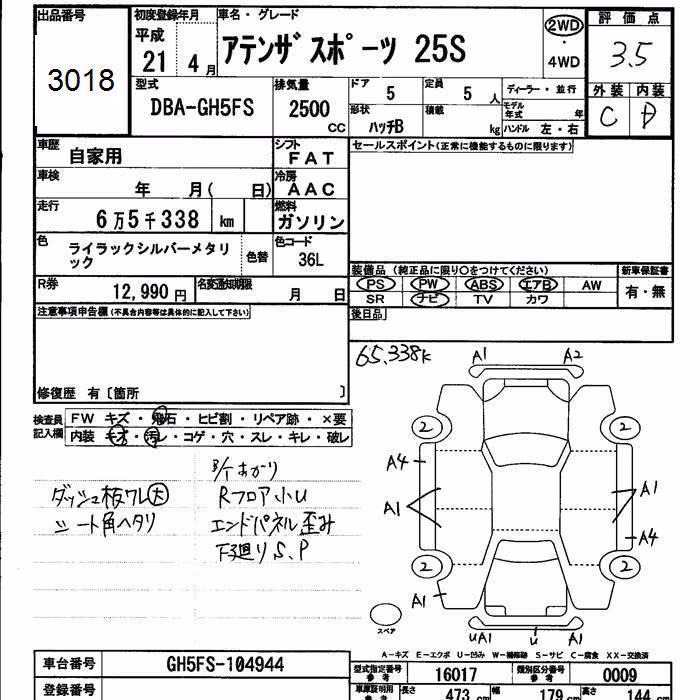 出品番号
3018
初度登録年月
平成
21 4月
車名・グレード
アテンザスポーツ 25S
2WD
・
4WD
評価点
3.5
外装 内装
C D
型式
DBA-GH5FS
排気量
2500
CC
ドア
5
定員
5 人
形状
ハッチB
積載
kg
ディーラー・並行
モデル年式 年
ハンドル 左・右
車歴
自家用
シフト
FAT
車検
年 月( 日)
冷房
AAC
走行
6万5千338 km
燃料
ガソリン
色
ライラックシルバーメタリック
色替
色コード
36L
R券
12,990円
名変通知期限
月 日
セールスポイント(正常に機能するものに限ります)
装備品 (純正品に限り○をつけてください)
PS PW ABS エアB AW
SR ナビ TV カワ
新車保証書
有・無
後日品
注意事項申告欄(不具合内容等は具体的に記入して下さい)
修復歴 有〔箇所 〕
検査員記入欄
FW キズ・飛石・ヒビ割・リペア跡・×要
内装 キズ・汚レ・コゲ・穴・スレ・キレ・破レ
65,338K
A1 A2
2 2
A4
A1 A1
A4
2 2
A1
UA1 U A1
スペア
ダッシュ板ワレ大
シート角ヘタリ
Rフロア小U
エンドパネル歪み
下廻りS.P
A-キズ E-エクボ U-凹み W-補修跡 S-サビ C-腐食 XX-交換済
車台番号
GH5FS-104944
登録番号
型式指定番号
参考
16017
類別区分番号
参考
0009
車庫証明用
参考
長さ
473 cm
幅
179 cm
高さ
144 cm